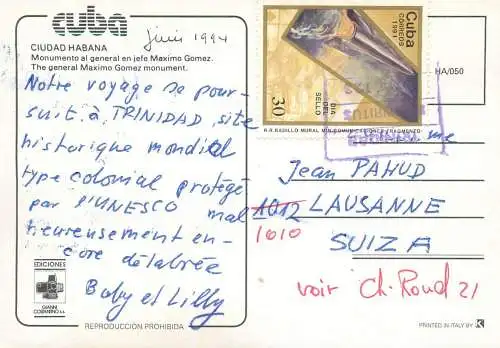 cuba
juin 1994
CIUDAD HABANA
Monumento al general en jefe Maximo Gomez.
The general Maximo Gomez monument.
Notre voyage se pour-
suit à TRINIDAD, site
historique mondial
type colonial protégé
par l'UNESCO mal
heureusement en-
core délabrée
Baby et Lilly
EDICIONES
GIANNI COSTANTINO s.a.
REPRODUCCIÓN PROHIBIDA
Cuba
CORREOS
1991
DIA
DEL
SELLO
30
R.R. RADILLO MURAL MIN. COMUNICACIONES FRAGMENTO
HA/050
TRINIDAD
me
Jean PAHUD
1012 LAUSANNE
1010
SUIZA
voir Ch. Roud 21
PRINTED IN ITALY BY K